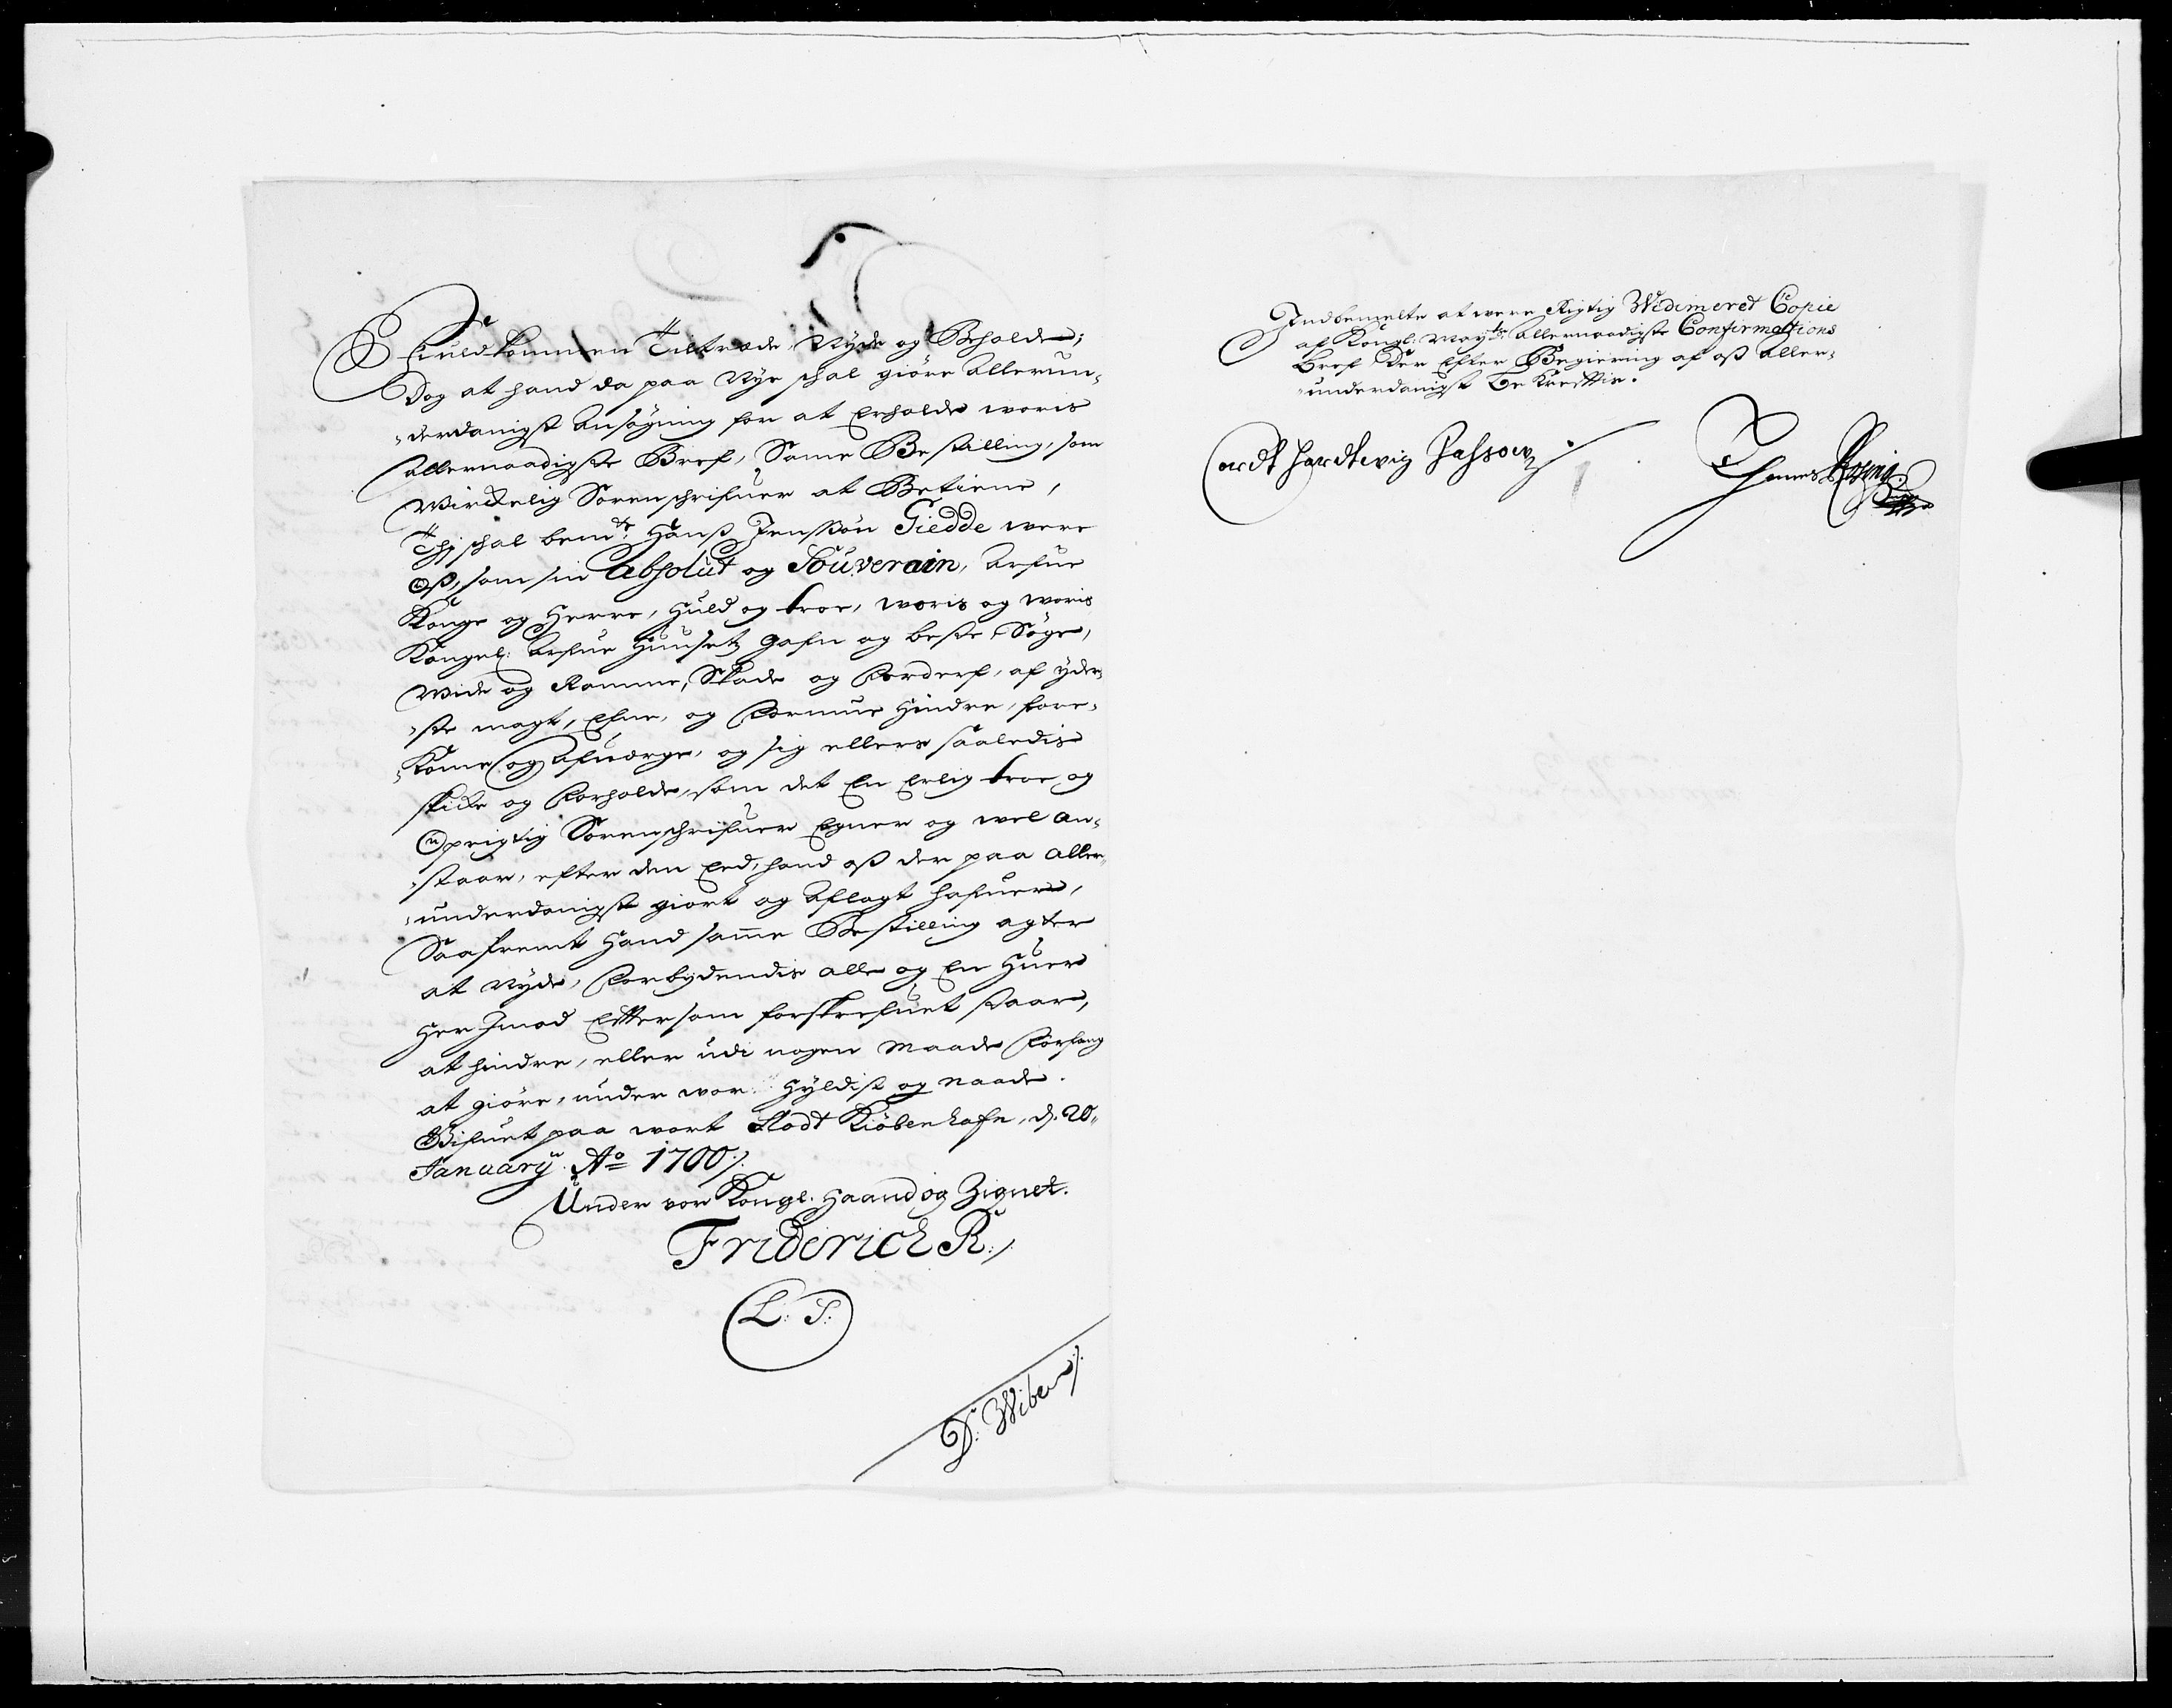 Fuldkommen Tiltræde, Nyde og Beholde;
Dog at hand da paa Nye skal giöre allerun-
derdanigst Ansögning for at Erholde woris
allernaadigste Bref, Same Bestilling, som
Wirckelig Sorenschrifuer at Betiene,
Thj skal bemte: Hanß Jenssön Giedde were
Oß, som sin Absolut og Souverain, Arfue
Konge og Herre, Huld og troe, woris og woris
Kongel: Arfue Huusetz Gafn og beste Söge,
Wide og Ramme, Skade og Forderf, af yder-
ste magt, Efne, og Formue Hindre, fore-
Kome og Afuerge, og sig ellers saaledis
skicke og Forholde, som det En Erlig troe og
Oprigtig Sorenschrifuer Egner og wel an-
staar, efter den Eed, hand oß der paa aller-
underdanigst giort og Aflagt hafuer,
Saafremt Hand same Bestilling agter
at Nyde, Forbydendis alle og En Huer
Her Imod Efter som forskrefuet staar,
at hindre, eller udi nogen Maade Forfang
at giöre, under wor Hyldist og Naade.
Gifuet paa wort Slodt Kiöbenhafn, d. 20
January Ao 1700 ⁒
Under vor Kongl. Haand og Zignet.
Friderich R: ⁒
L: S:
D: Wibe ⁒
Indbemelte at were Rigtig Widimeret Copie
af Kongl: Maytz: allernaadigste Confirmations
Bref der Efter Begiering af oß aller-
underdanigst Be Kreftis.
Cordt Hardtwig Passow